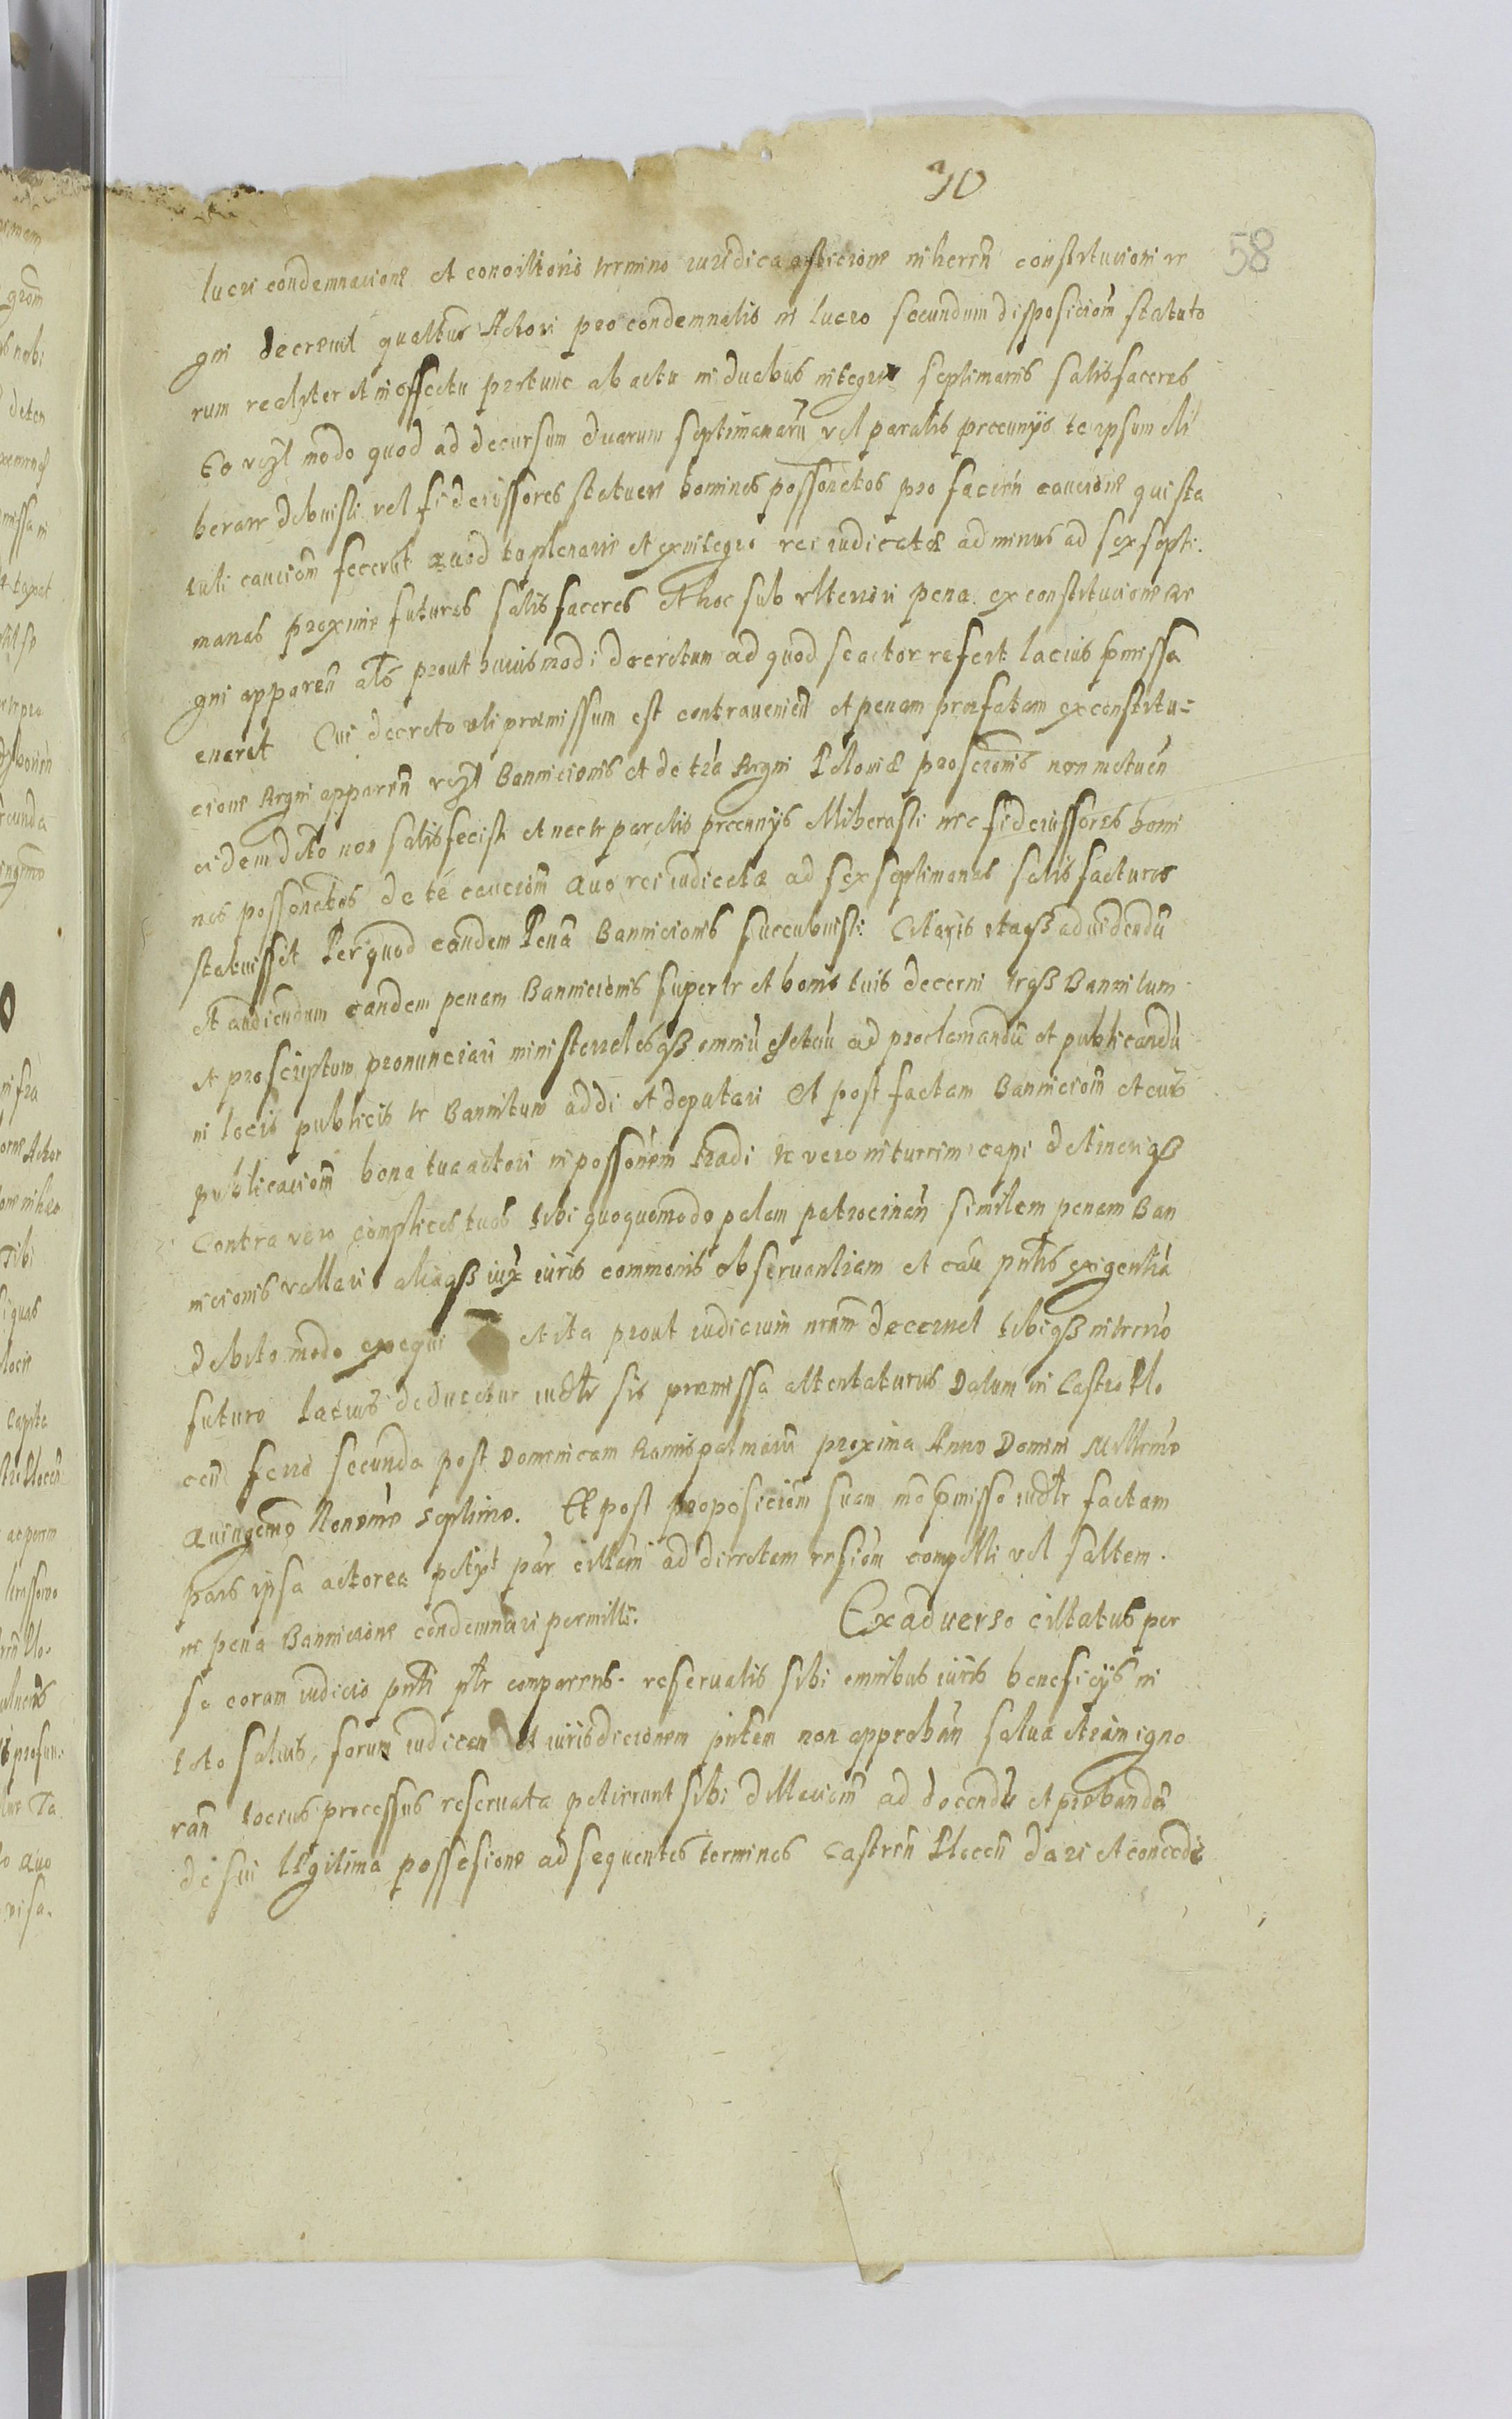 10
58
lucri condemnacione et concitatorio termino iuridica affliccione inheren constitucioni re
gni decreuit quatenus Actori pro condemnatis in lucro secundum disposiciom statuto
rum realiter et in effectu protunc ab actu in duabus integris septimanis satisfaceres
Eo vczl modo quod ad decursum duarum septimanaru vel paratis pecunijs te ipsum eli
berare debuisti vel fideiussores statuere homines possonatos pro facien caucione qui sta
tuti cauciom fecerut quod ta plenarie et exintegro rei iudicatæ ad minus ad sex septi.
manas proxime futuras satisfaceres Et hoc sub vlteriori pena ex constitucione re
gni apparen alts prout huiusmodi decretum ad quod se actor refert lacius pmissa
enarat Cui decreto vti præmissum est contraueniendo et penam præfatam ex constitu=
cione Regni apparen vczl Bannicionis et de tra Regni Poloniæ proscrionis non metuen
eidem dcto non satisfecisti et nec te paratis pecunijs eliberasti nec fideiussores homi
nes possonatos de te cauciom quo rei iudicatæ ad sex septimanas satisfacturos
statuisset Per quod eandem Pena Bannicionis succubuisti Citaris itaqß ad videndu
et audiendum eandem penam Bannicionis super te et bonis tuis decerni teqß Bannitum
et proscriptum pronunciari ministerialesqß omniu ad proclamandu et publicandu
in locis publicis te Bannitum addi et deputari Et post factam Banniciom et eius
publicaciom bona tua actori in possonem tradi te vero in turrim capi detineriqß
Contra vero complices tuos tibi quoquomodo palam patrocinan similem penam Ban
nicionis vallari aliaqß iux iuris communis obseruantiam et cau pntis exigentia
debito modo exequi et ita prout iudicium nrum decernet tibiqß in termo
futuro lacius deducetur iudtr sis præmissa attentaturus Datum in Castro Plo
cen feria secunda post Dominicam Ramispalmaru proxima Anno Domini Millemo
Quingemo Nonamo septimo. Et post proposiciom suam mo pmisso iudtr factam
pars ipsa actorea petyt par citatam ad directam rnsiom compelli vel saltem.
in pena Bannicione condemnari permitti. Ex aduerso citatus per
se coram iudicio pnti pltr comparens. reseruatis sibi omnibus iuris beneficijs in
toto saluis, forum iudicem et iurisdicionem pntem non approban salua etiam igno
ran tocius processus reseruata petierunt sibi dillaciom ad docendu et probandu
de sui legitima possesione ad sequentes terminos castren Plocen dari et concedi